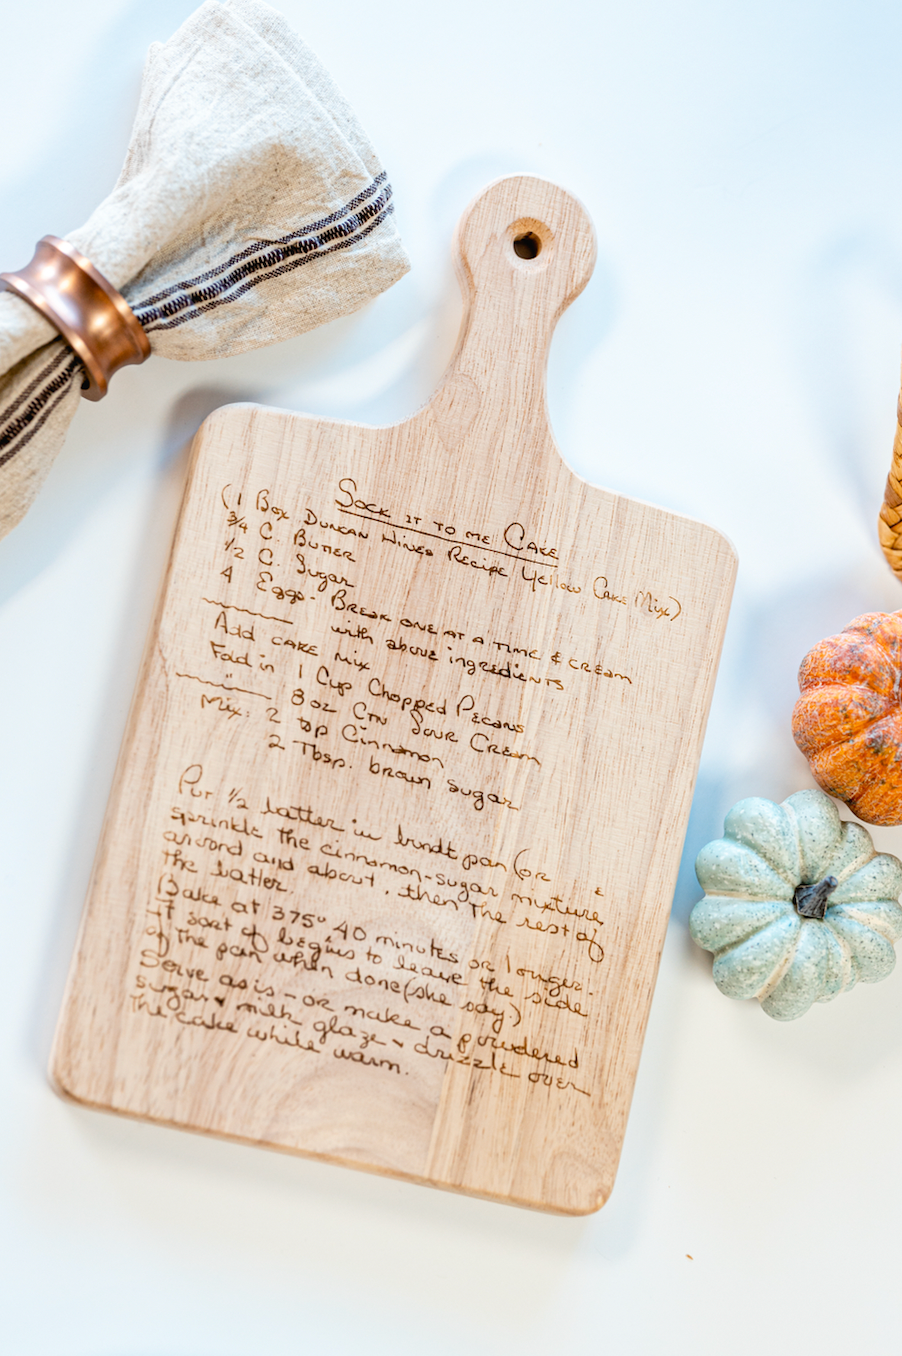 Sock it to me Cake
(1 Box Duncan Hines Recipe Yellow Cake Mix)
3/4 C. Butter
1/2 C. Sugar
4 Eggs - Break one at a time & cream
with above ingredients
Add cake mix
Fold in 1 Cup Chopped Pecans
8 oz Ctn Sour Cream
Mix: 2 tsp Cinnamon
2 Tbsp. brown sugar
Put 1/2 batter in bundt pan (or &
sprinkle the cinnamon-sugar mixture
around and about, then the rest of
the batter.
Bake at 375° 40 minutes or longer.
It sort of begins to leave the side
of the pan when done (she say.)
Serve as is - or make a powdered
sugar & milk glaze & drizzle over
the cake while warm.